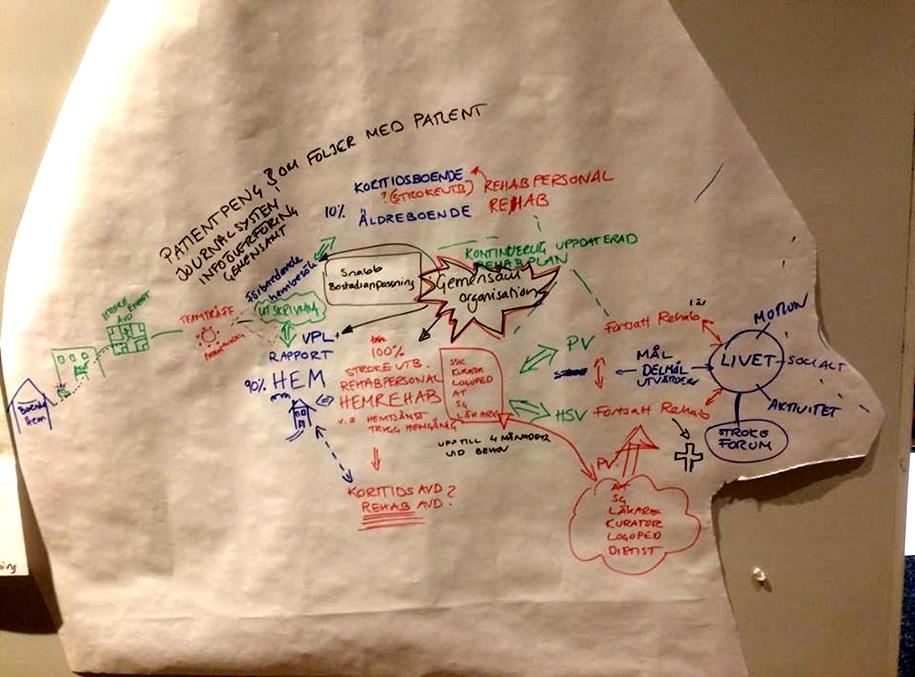 PATIENTPENG SOM FÖLJER MED PATIENT
JOURNALSYSTEM
INFOÖVERFÖRING
GEMENSAMT
KORTTIDSBOENDE
? (STROKEUTB)
REHABPERSONAL
REHAB
10%
ÄLDREBOENDE
KONTINUERLIG UPPDATERAD
REHABPLAN
Förberedande
hembesök
Snabb
Bostadsanpassning
Gemensam
organisation
UTSKRIVNING
STROKE
ENHET
AVD
TEAMTRÄFF
VPL
RAPPORT
90% HEM
100%
STROKE UTB.
REHABPERSONAL
HEMREHAB
HEMTJÄNST
TRYGG HEMGÅNG
SSK
KURATOR
LOGOPED
AT
SG
LÄKARE
UPP TILL 4 MÅNADER
VID BEHOV
KORTTIDS AVD?
REHAB AVD.
PV
HSV
Fortsatt Rehab
1 år
MÅL
DELMÅL
UTVÄRDERA
Fortsatt Rehab
LIVET
MOTION
SOCIALT
AKTIVITET
STROKE
FORUM
PV
AT
SG
LÄKARE
KURATOR
LOGOPED
DIETIST
hem
ing